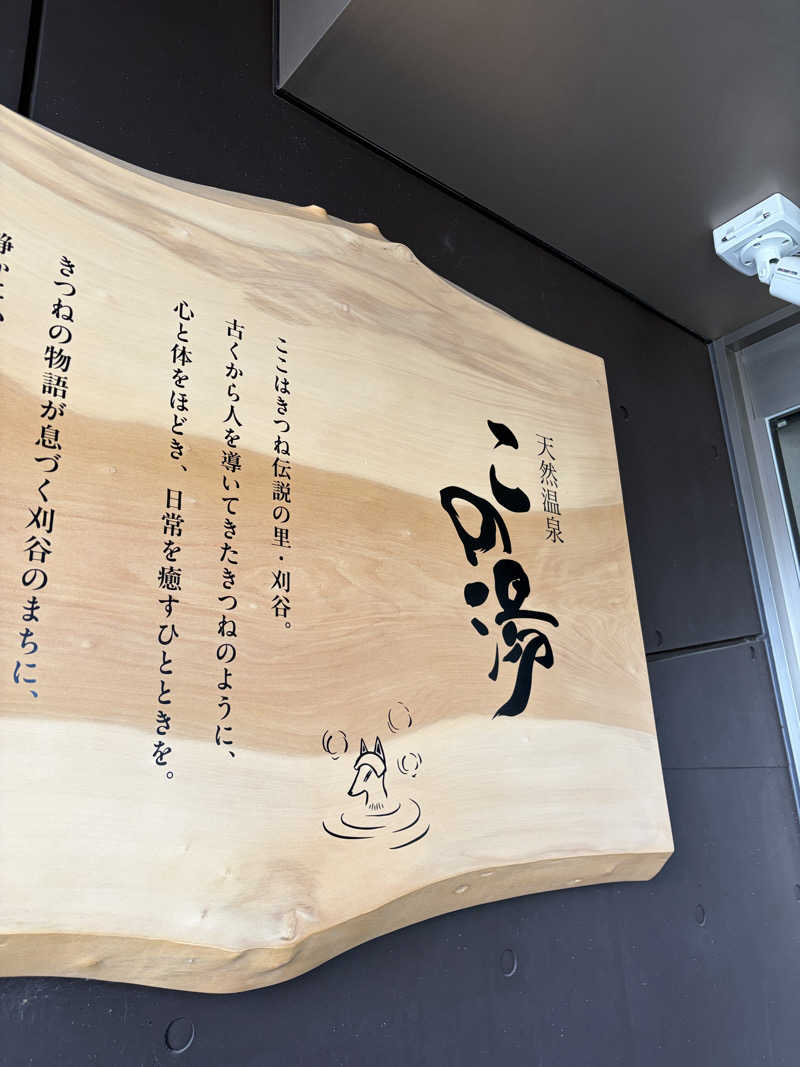 天然温泉
この湯
ここはきつね伝説の里・刈谷。
古くから人を導いてきたきつねのように、
心と体をほどき、日常を癒すひとときを。
きつねの物語が息づく刈谷のまちに、